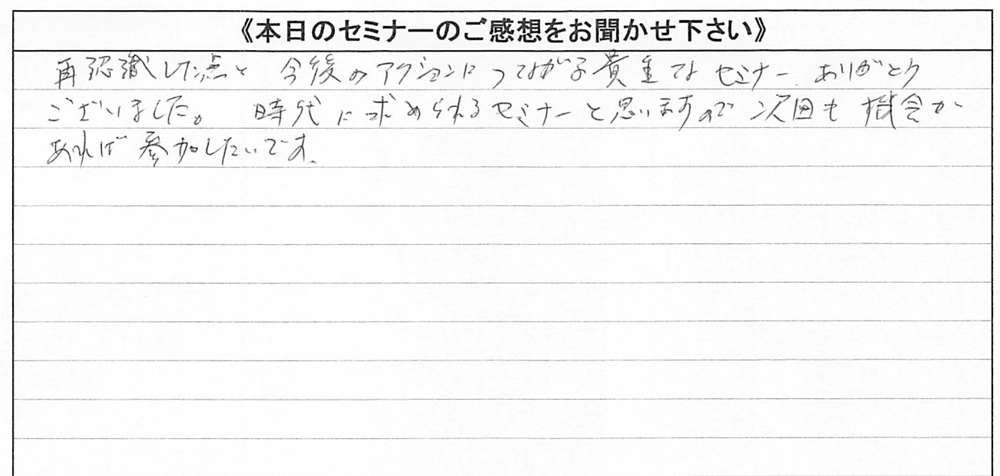 《本日のセミナーのご感想をお聞かせ下さい》
再認識した点と 今後のアクションにつながる貴重なセミナー、ありがとう
ございました。 時代に求められるセミナーと思いますので 次回も機会が
あれば 参加したいです。